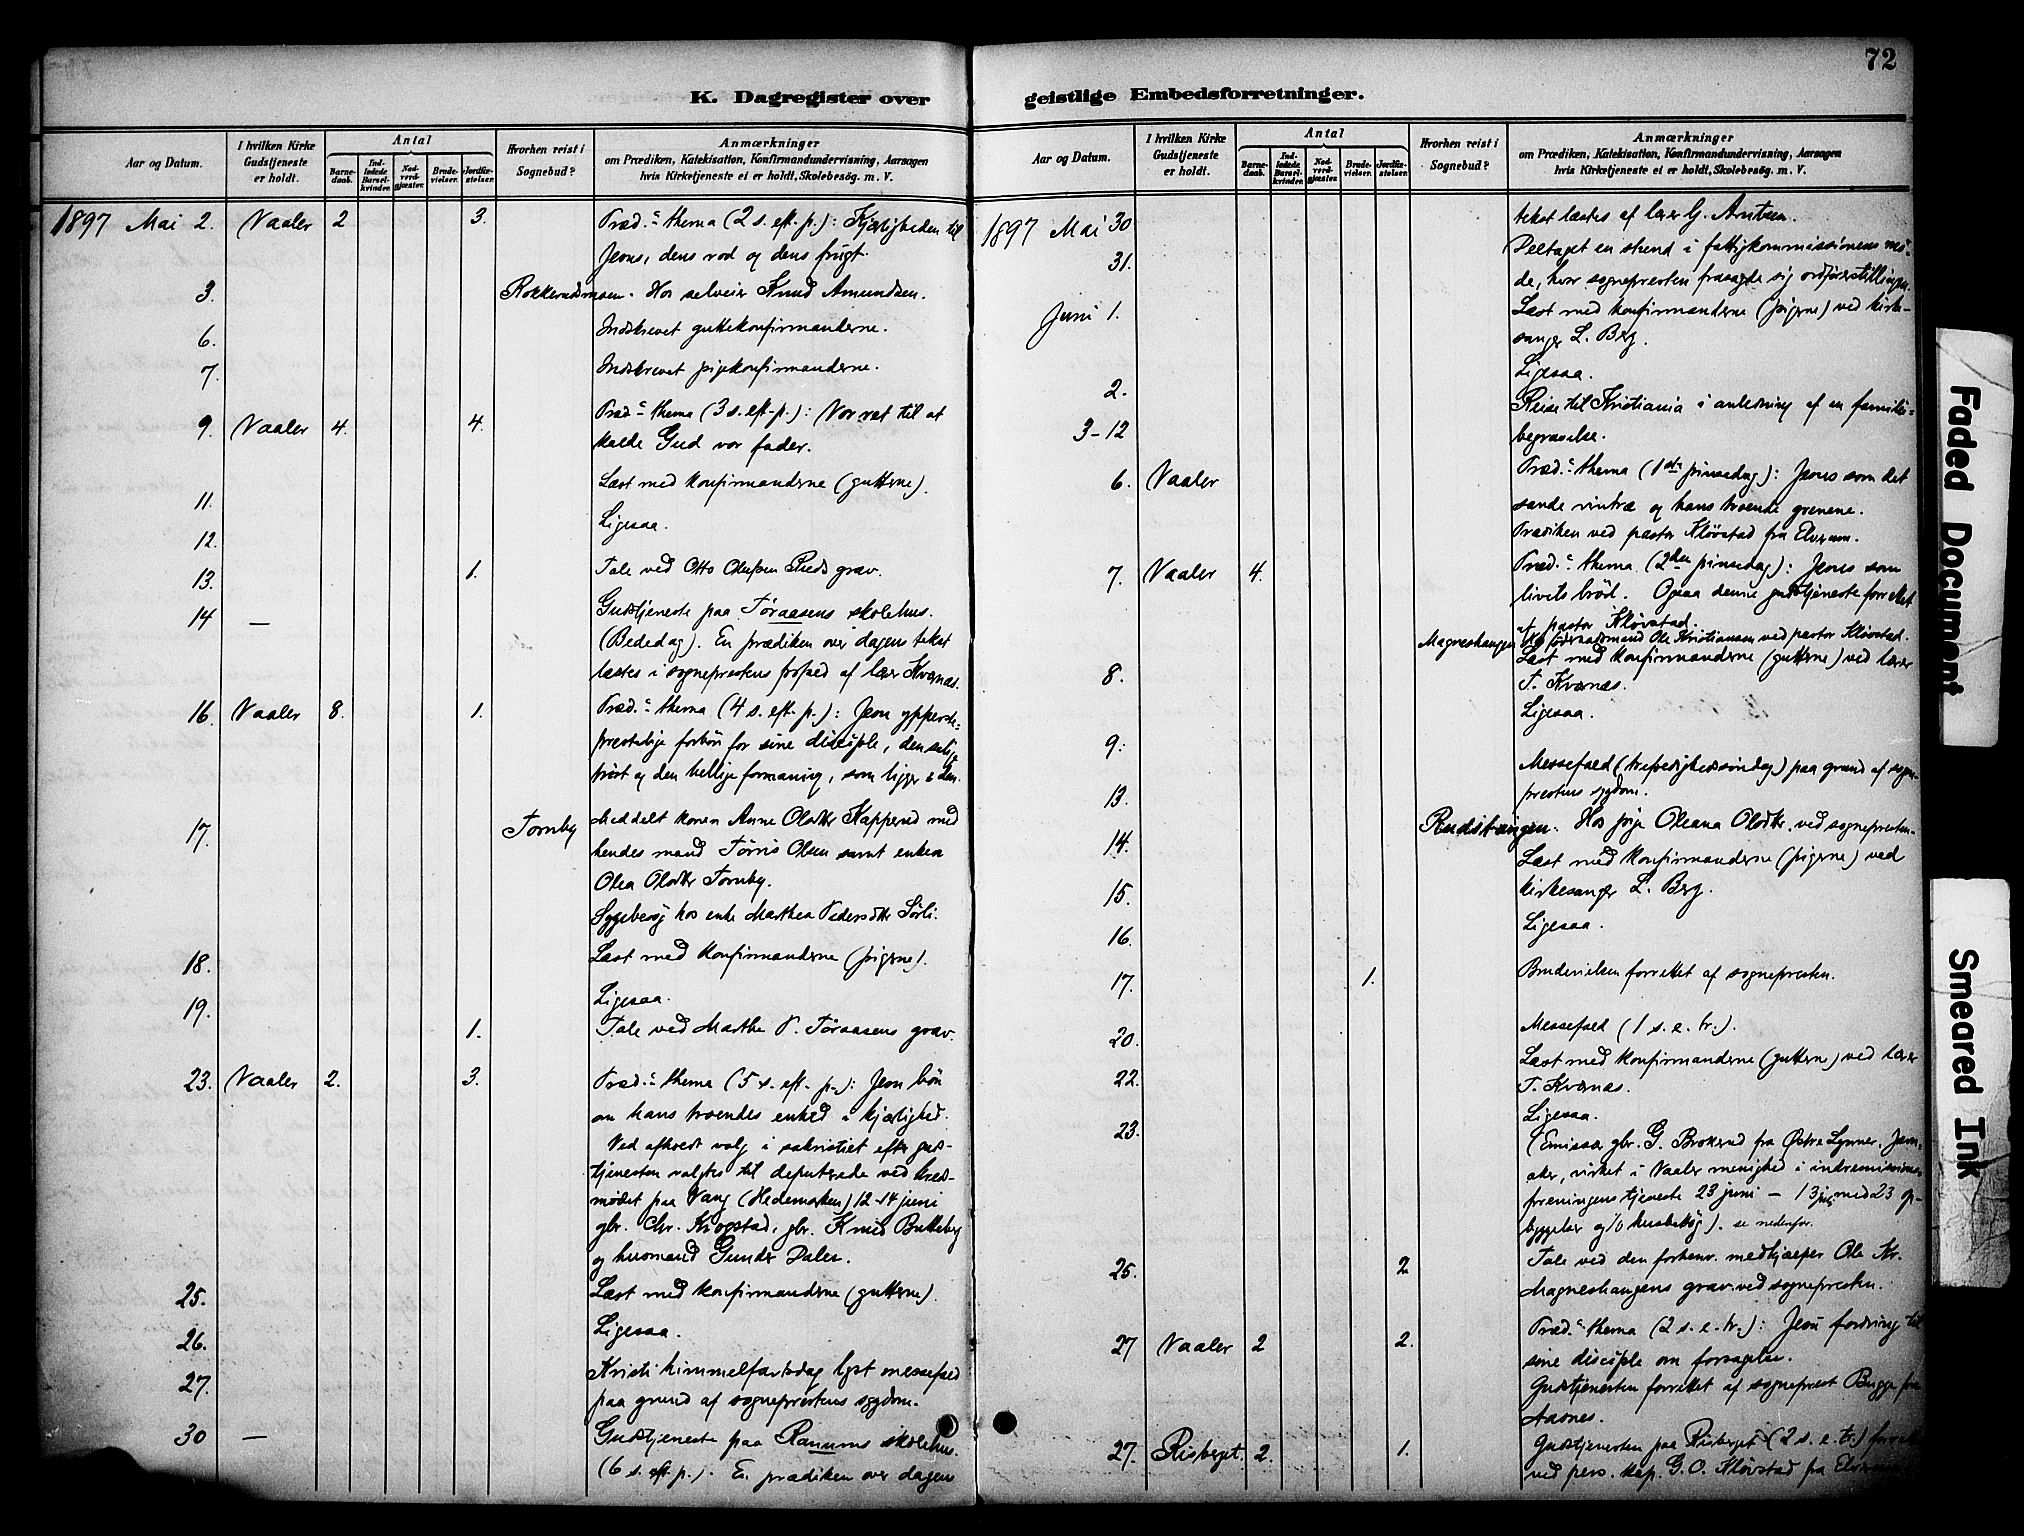 72
K. Dagregister over geistlige Embedsforretninger.
Aar og Datum.
I hvilken Kirke Gudstjeneste er holdt.
Antal
Barnedaab.
Indledede Barselkvinder.
Nadverdgjæster.
Brudevielser.
Jordfæstelser.
Hvorhen reist i Sognebud?
Anmærkninger
om Prædiken, Katekisation, Konfirmandundervisning, Aarsagen
hvis Kirketjeneste ei er holdt, Skolebesög. m. V.
1897 Mai 2. Vaaler 2 3. Præd.: thema (2 s. eft. p.): Kjærligheden til
Jesus, dens rod og dens frugt.
3. Rokkerudsmoen. Hos selveier Knud Amundsen.
6. Indskrevet guttekonfirmanderne.
7. Indskrevet pigekonfirmanderne.
9. Vaaler 4. 4. Præd.: thema (3 s. eft. p.): Vor ret til at
kalde Gud vor fader.
11. Læst med konfirmanderne (gutterne).
12. Ligesaa.
13. 1. Tale ved Otto Olufsen Ruds grav.
14 — Gudstjeneste paa Töraasens skolehus.
(Bededag). En prædiken over dagens tekst
læstes i sogneprestens forfald af lærer Kvernæs.
16. Vaaler 8. 1. Præd.: thema (4 s. eft. p.): Jesu ypperste-
prestelige forbön for sine disciple, den salige
tröst og den hellige formaning, som ligger i den.
17. Tornby Meddelt konen Anne Olsdtr Kapperud med
hendes mand Törris Olsen samt enken
Olea Olsdtr Tornby.
Sygebesög hos enke Marthea Pedersdtr Sörli.
18. Læst med konfirmanderne (pigerne).
19. Ligesaa.
1. Tale ved Marthe P. Töraasens grav.
23. Vaaler 2. 3. Præd.: thema (5 s. eft. p.): Jesu bön
om hans troendes enhed i kjærlighed.
Ved afholdt valg i sakristiet efter guds-
tjenesten valgtes til deputerede ved kreds-
mödet paa Vang (Hedemarken) 12-14 juni
gbr. Chr. Krogstad, gbr. Knud Butteberg
og husmand Gunder Dalen.
25. Læst med konfirmanderne (gutterne).
26. Ligesaa.
27. Kristi himmelfartsdag lyst messefald
paa grund af sogneprestens sygdom.
30 — Gudstjeneste paa Ranums skolehus.
(6 s. eft. p.). En prædiken over dagens
Aar og Datum.
I hvilken Kirke Gudstjeneste er holdt.
Antal
Barnedaab.
Indledede Barselkvinder.
Nadverdgjæster.
Brudevielser.
Jordfæstelser.
Hvorhen reist i Sognebud?
Anmærkninger
om Prædiken, Katekisation, Konfirmandundervisning, Aarsagen
hvis Kirketjeneste ei er holdt, Skolebesög. m. V.
1897 Mai 30 tekst læstes af lærer G. Arntsen.
31. Deltaget en stund i fattigkommissionens mö-
de, hvor sognepresten frasagde sig ordförerstillingen.
Juni 1. Læst med konfirmanderne (pigerne) ved kirke-
sanger L. Berg.
2. Ligesaa.
3-12 Reise til Kristiania i anledning af en familie-
begravelse.
6. Vaaler Præd.: thema (1ste pinsedag): Jesus som det
sande vintræ og hans troende grenene.
Prædiken ved pastor Klövstad fra Elverum.
7. Vaaler 4. Præd.: thema (2den pinsedag): Jesus som
livets bröd. Ogsaa denne gudstjeneste forrettet
af pastor Klövstad.
Magneshaugen Ole Kristiansen ved pastor Klövstad.
8. Læst med konfirmanderne (gutterne) ved lærer
T. Kvernæs.
9. Ligesaa.
13. Messefald (trefoldighedssöndag) paa grund af sogne-
prestens sygdom.
14. Rudstangen. Hos pige Oleana Olsdtr. ved sognepresten.
15. Læst med konfirmanderne (pigerne) ved
kirkesanger L. Berg.
16. Ligesaa.
17. 1. Brudevielsen forrettet af sognepresten.
20. Messefald (1 s. e. tr.).
22. Læst med konfirmanderne (gutterne) ved lærer
T. Kvernæs.
23. Ligesaa.
(Emissær gbr. G. Brokerud fra Östre Lynner, Jevn-
aker, virket i Vaaler menighed i indremissions-
foreningens tjeneste 23 juni – 13 juli med 23 op-
byggelser og husbesög). se nedenfor.
25. 2 Tale ved den forhenv. medhjælper Ole Kr.
Magneshaugens grav ved sognepresten.
27 Vaaler 2 2. Præd.: thema (2 s. e. tr.): Jesu fordring til
sine disciple om forsagelse.
Gudstjenesten forrettet af sogneprest Bugge fra
Aasnes.
27. Risberget. 2. 1. Gudstjenesten paa Risberget (2 s. e. tr.)
ved pers. kap. G. O. Klövstad fra Elverum
Faded Document
Smeared Ink